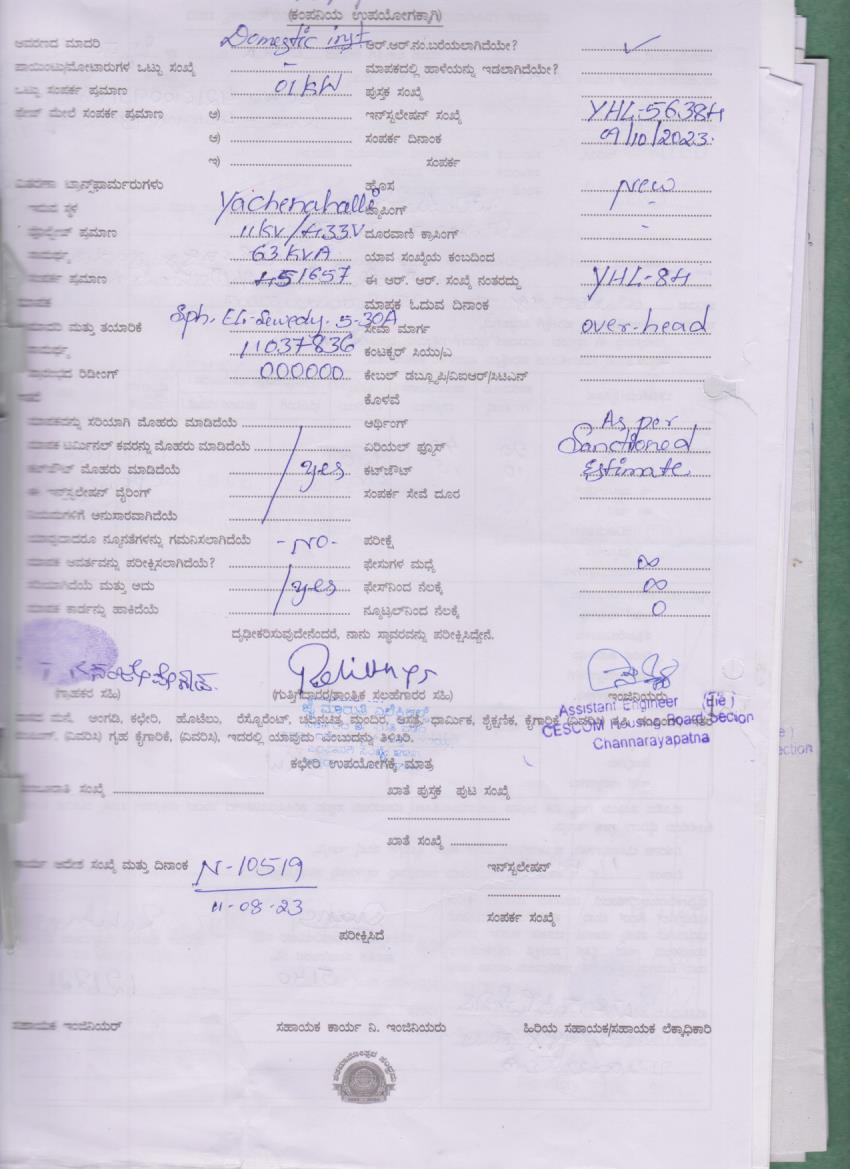 (ಕಂಪನಿಯ ಉಪಯೋಗಕ್ಕಾಗಿ)
ಆವರಣದ ಮಾದರಿ Domestic inst ಆರ್.ಆರ್.ನಂ.ಬರೆಯಲಾಗಿದೆಯೇ? ✓
ಪಾಯಿಂಟು/ಮೋಟಾರುಗಳ ಒಟ್ಟು ಸಂಖ್ಯೆ - ಮಾಪಕದಲ್ಲಿ ಹಾಳೆಯನ್ನು ಇಡಲಾಗಿದೆಯೇ?
ಒಟ್ಟು ಸಂಪರ್ಕ ಪ್ರಮಾಣ 01 KW ಪುಸ್ತಕ ಸಂಖ್ಯೆ
ಫೇಸ್ ಮೇಲೆ ಸಂಪರ್ಕ ಪ್ರಮಾಣ ಅ) ಇನ್‌ಸ್ಟಲೇಷನ್ ಸಂಖ್ಯೆ YHL-5638H
ಆ) ಸಂಪರ್ಕ ದಿನಾಂಕ 09/10/2023.
ಇ) ಸಂಪರ್ಕ
ವಿತರಣಾ ಟ್ರಾನ್ಸ್‌ಫಾರ್ಮರುಗಳು ಹೊಸ New
ಇರುವ ಸ್ಥಳ Yachenahalli ಟ್ಯಾಪಿಂಗ್ -
ವೋಲ್ಟೇಜ್ ಪ್ರಮಾಣ 11KV/433V ದೂರವಾಣಿ ಕ್ರಾಸಿಂಗ್ -
ಸಾಮರ್ಥ್ಯ 63 KVA ಯಾವ ಸಂಖ್ಯೆಯ ಕಂಬದಿಂದ
ಸಂಪರ್ಕ ಪ್ರಮಾಣ 51657 ಈ ಆರ್. ಆರ್. ಸಂಖ್ಯೆ ನಂತರದ್ದು YHL-8H
ಮಾಪಕ ಮಾಪಕ ಓದುವ ದಿನಾಂಕ
ಮಾದರಿ ಮತ್ತು ತಯಾರಿಕೆ Sph. 5-30A ಸೇವಾ ಮಾರ್ಗ over-head
ಸಾಮರ್ಥ್ಯ 11037836 ಕಂಡಕ್ಟರ್ ಸಿಯು/ಎ
ಪ್ರಾರಂಭದ ರಿಡಿಂಗ್ 000000 ಕೇಬಲ್ ಡಬ್ಲ್ಯೂಪಿ/ವಿಐಆರ್/ಸಿಟಿಎನ್
ಕೊಳವೆ
ಮಾಪಕವನ್ನು ಸರಿಯಾಗಿ ಮೊಹರು ಮಾಡಿದೆಯೆ ಆರ್ಥಿಂಗ್ As per
ಮಾಪಕ ಟರ್ಮಿನಲ್ ಕವರನ್ನು ಮೊಹರು ಮಾಡಿದೆಯೆ ಏರಿಯಲ್ ಫ್ಯೂಸ್ Sanctioned
ಕಟ್‌ಔಟ್ ಮೊಹರು ಮಾಡಿದೆಯೆ yes ಕಟ್‌ಔಟ್ Estimate
ಈ ಇನ್‌ಸ್ಟಲೇಷನ್ ವೈರಿಂಗ್ ಸಂಪರ್ಕ ಸೇವೆ ದೂರ
ನಿಯಮಗಳಿಗೆ ಅನುಸಾರವಾಗಿದೆಯೆ
ಯಾವುದಾದರೂ ನ್ಯೂನತೆಗಳನ್ನು ಗಮನಿಸಲಾಗಿದೆಯೆ -NO- ಪರೀಕ್ಷೆ
ಮಾಪಕ ಆವರ್ತವನ್ನು ಪರೀಕ್ಷಿಸಲಾಗಿದೆಯೆ? ಫೇಸುಗಳ ಮಧ್ಯೆ ∞
ಸರಿಯಾಗಿದೆಯೆ ಮತ್ತು ಅದು yes ಫೇಸ್‌ನಿಂದ ನೆಲಕ್ಕೆ ∞
ಮಾಪಕ ಕಾರ್ಡನ್ನು ಹಾಕಿದೆಯೆ ನ್ಯೂಟ್ರಲ್‌ನಿಂದ ನೆಲಕ್ಕೆ 0
ದೃಢೀಕರಿಸುವುದೇನೆಂದರೆ, ನಾನು ಸ್ಥಾವರವನ್ನು ಪರೀಕ್ಷಿಸಿದ್ದೇನೆ.
(ಗ್ರಾಹಕರ ಸಹಿ) (ಗುತ್ತಿಗೆದಾರರ/ತಾಂತ್ರಿಕ ಸಲಹೆಗಾರರ ಸಹಿ) ಇಂಜಿನಿಯರು
Assistant Engineer (ವಿ)
CESCOM Housing Board Section
Channarayapatna
ವಾಸದ ಮನೆ, ಅಂಗಡಿ, ಕಛೇರಿ, ಹೊಟೆಲು, ರೆಸ್ಟೊರೆಂಟ್, ಚಲನಚಿತ್ರ ಮಂದಿರ, ಆಸ್ಪತ್ರೆ, ಧಾರ್ಮಿಕ, ಶೈಕ್ಷಣಿಕ, ಕೈಗಾರಿಕೆ (ವಿವರಿಸಿ)
(ವಿವರಿಸಿ) ಗೃಹ ಕೈಗಾರಿಕೆ, (ವಿವರಿಸಿ), ಇದರಲ್ಲಿ ಯಾವುದು ಎಂಬುದನ್ನು ತಿಳಿಸಿರಿ.
ಕಛೇರಿ ಉಪಯೋಗಕ್ಕೆ ಮಾತ್ರ
ಸಂಖ್ಯೆ ಖಾತೆ ಪುಸ್ತಕ ಪುಟ ಸಂಖ್ಯೆ
ಖಾತೆ ಸಂಖ್ಯೆ
ಕಾರ್ಯ ಆದೇಶ ಸಂಖ್ಯೆ ಮತ್ತು ದಿನಾಂಕ N-10519 ಇನ್‌ಸ್ಟಲೇಷನ್
11-08-23
ಸಂಪರ್ಕ ಸಂಖ್ಯೆ
ಪರೀಕ್ಷಿಸಿದೆ
ಸಹಾಯಕ ಇಂಜಿನಿಯರ್ ಸಹಾಯಕ ಕಾರ್ಯ ನಿ. ಇಂಜಿನಿಯರು ಹಿರಿಯ ಸಹಾಯಕ/ಸಹಾಯಕ ಲೆಕ್ಕಾಧಿಕಾರಿ